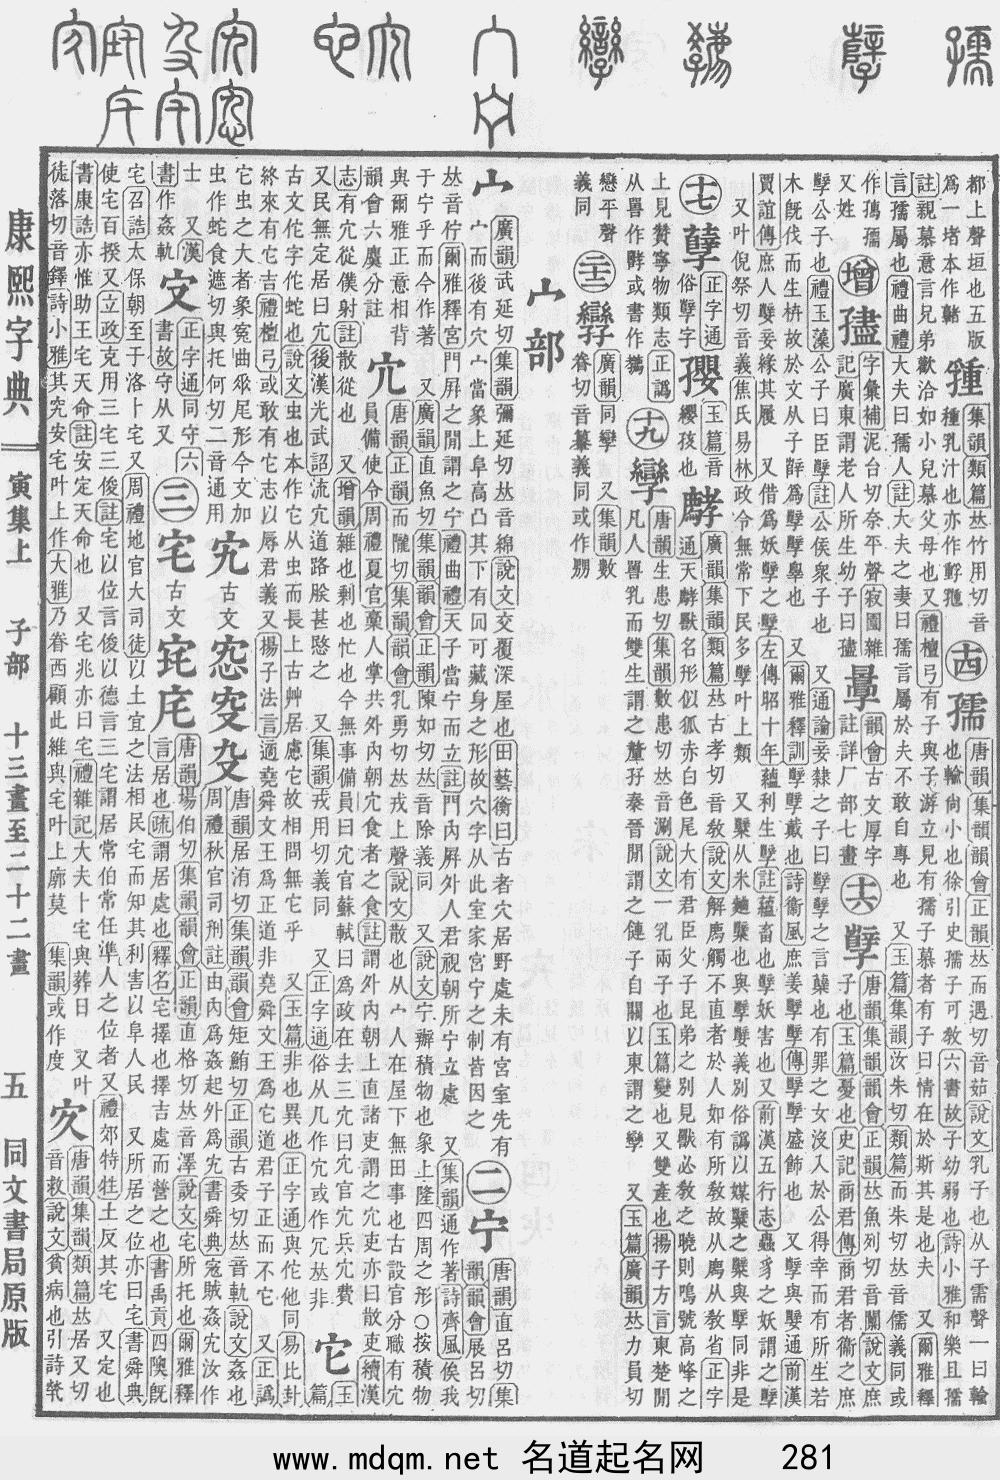 都上聲垣也五版
爲一堵本作
集韻類篇𠀤竹用切音
種乳汁也亦作
孺 唐韻集韻韻會正韻𠀤而遇切音茹說文乳子也从子需聲一曰輸
也輸尙小也徐引史孺子可敎 六書故子幼弱也詩小雅和樂且孺
註親慕意言兄弟歡洽如小兒慕父母也又禮檀弓有子與子游立見有孺子慕者有子曰情在於斯其是也夫 又爾雅釋
言孺屬也禮曲禮大夫曰孺人註大夫之妻曰孺言屬於夫不敢自專也 又玉篇集韻汝朱切類篇而朱切𠀤音儒義同或
又姓
增 㜑 字彙補泥台切奈平聲寂園雜
記廣東謂老人所生幼子曰㜑
韻會古文厚字
註詳厂部七畫
十六 孼 唐韻集韻韻會正韻𠀤魚列切音闑說文庶
子也玉篇憂也史記商君傳商君者衞之庶
孼公子也禮玉藻公子曰臣孼註公侯衆子也 又通論妾隸之子曰孼孼之言蘖也有罪之女沒入於公得幸而有所生若
木旣伐而生枿故於文从子辥爲孼孼辠也 又爾雅釋訓孼孼戴也詩衞風庶姜孼孼傳孼孼盛飾也 又孼與㜸通前漢
賈誼傳庶人孼妾緣其履 又借爲妖孼之孼左傳昭十年蘊利生孼註蘊畜也孼妖害也又前漢五行志蟲豸之妖謂之孼
又叶倪祭切音義焦氏易林政令無常下民多孼叶上類 又糵从米麯糵也與孼孼義別俗譌以媒糵之糵與孼同非是
十七 孽 正字通
俗孼字
玉篇音
纓孩也
廣韻集韻類篇𠀤古孝切音敎說文解廌觸不直者於人如有所敎故从廌从敎省正字
通天獸名形似狐赤白色尾大有君臣父子昆弟之別見獸必敎之曉則鳴號高峰之
上見贊寧物類志正譌
十九 孿 唐韻生患切集韻數患切𠀤音涮說文一乳兩子也玉篇變也又雙產也揚子方言東楚閒
凡人嘼乳而雙生謂之釐孖秦晉閒謂之僆子自關以東謂之孿 又玉篇廣韻𠀤力員切
戀平聲
義同
二十二 㝈 廣韻同孿 又集韻數
眷切音義同或作
宀部
宀 廣韻武延切集韻彌延切𠀤音綿說文交覆深屋也田藝衡曰古者穴居野處未有宮室先有
宀而後有穴宀當象上阜高凸其下有回可藏身之形故穴字从此室家宮宁之制皆因之
二 宁 唐韻直呂切集
韻韻會展呂切
𠀤音佇爾雅釋宮門屛之閒謂之宁禮曲禮天子當宁而立註門內屛外人君視朝所宁立處 又集韻通作著詩齊風俟我
于宁乎而今作著 又廣韻直魚切集韻韻會正韻陳如切𠀤音除義同 又說文宁辨積物也象上隆四周之形○按積物
與爾雅正意相背
韻會六𧆌分註
宂 唐韻正韻而隴切集韻韻會乳勇切𠀤戎上聲說文散也从宀人在屋下無田事也古設官分職有宂
員備使令周禮夏官藁人掌共外內朝宂食者之食註謂外內朝上直諸吏謂之宂吏亦曰散吏續漢
志有宂從僕射註散從也 又增韻雜也剩也忙也今無事備員曰宂官蘇軾曰爲政在去三宂曰宂官宂兵宂費
又民無定居曰宂後漢光武詔流宂道路朕甚愍之 又集韻戎用切義同 又正字通俗从几作宂或作冗𠀤非
它 玉篇
古文佗字佗蛇也說文虫也本作它从虫而長上古艸居慮它故相問無它乎 又玉篇非也異也正字通與佗他同易比卦
終來有它吉禮檀弓或敢有它志以辱君義又揚子法言適堯舜文王爲正道非堯舜文王爲它道君子正而不它 又正譌
它虫之大者象寃曲𠂹尾形今文加
虫作蛇食遮切與托何切二音通用
宄 古文 㝌
唐韻居洧切集韻韻會矩鮪切正韻古委切𠀤音軌說文姦也
周禮秋官司刑註由內爲姦起外爲宄書舜典寇賊姦宄汝作
士 又漢
書作姦軌
正字通同守 六
書故守从又
三 宅 古文 㡯
唐韻場伯切集韻韻會正韻直格切𠀤音澤說文宅所托也爾雅釋
言居也疏謂居處也釋名宅擇也擇吉處而營之也書禹貢四隩旣
宅召誥太保朝至于洛卜宅又周禮地官大司徒以土宜之法相民宅而知其利害以阜人民 又所居之位亦曰宅書舜典
使宅百揆又立政克用三宅三俊註宅以位言俊以德言三宅謂居常伯常任準人之位者又禮郊特牲土反其宅 又定也
書康誥亦惟助王宅天命註安定天命也 又宅兆亦曰宅禮雜記大夫卜宅與葬日 又叶
徒落切音鐸詩小雅其究安宅叶上作大雅乃眷西顧此維與宅叶上廓莫 集韻或作度
㝌 唐韻集韻類篇𠀤居又切
音救說文貧病也引詩煢
康熙字典 寅集上 子部 十三畫至二十二畫 五 同文書局原版
www.mdqm.net 名道起名网 281